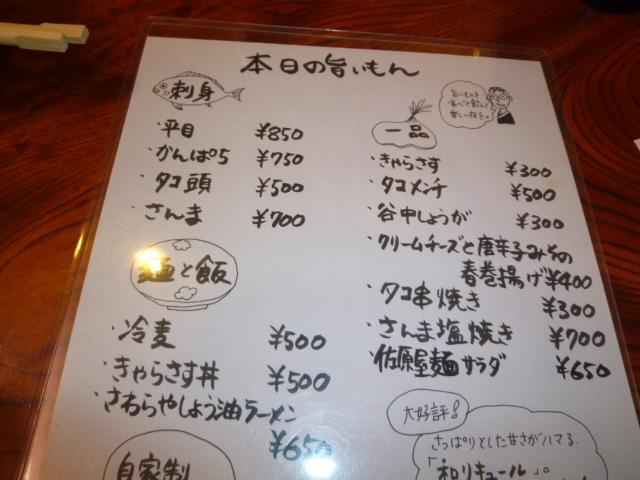 本日の旨いもん
刺身
・平目 ¥850
・かんぱち ¥750
・タコ頭 ¥500
・さんま ¥700
麺と飯
・冷麦 ¥500
・きゃらさす丼 ¥500
・さわらやしょう油ラーメン
¥650
自家制
旨いもんを
食べて飲んで
楽しい夜を。
一品
・きゃらさす ¥300
・タコメンチ ¥500
・谷中しょうが ¥300
・クリームチーズと唐辛子みその
春巻揚げ ¥400
・タコ串焼き ¥300
・さんま塩焼き ¥700
・佐原屋麺サラダ ¥650
大好評!
さっぱりとした甘さがハマる
「和リキュール」。